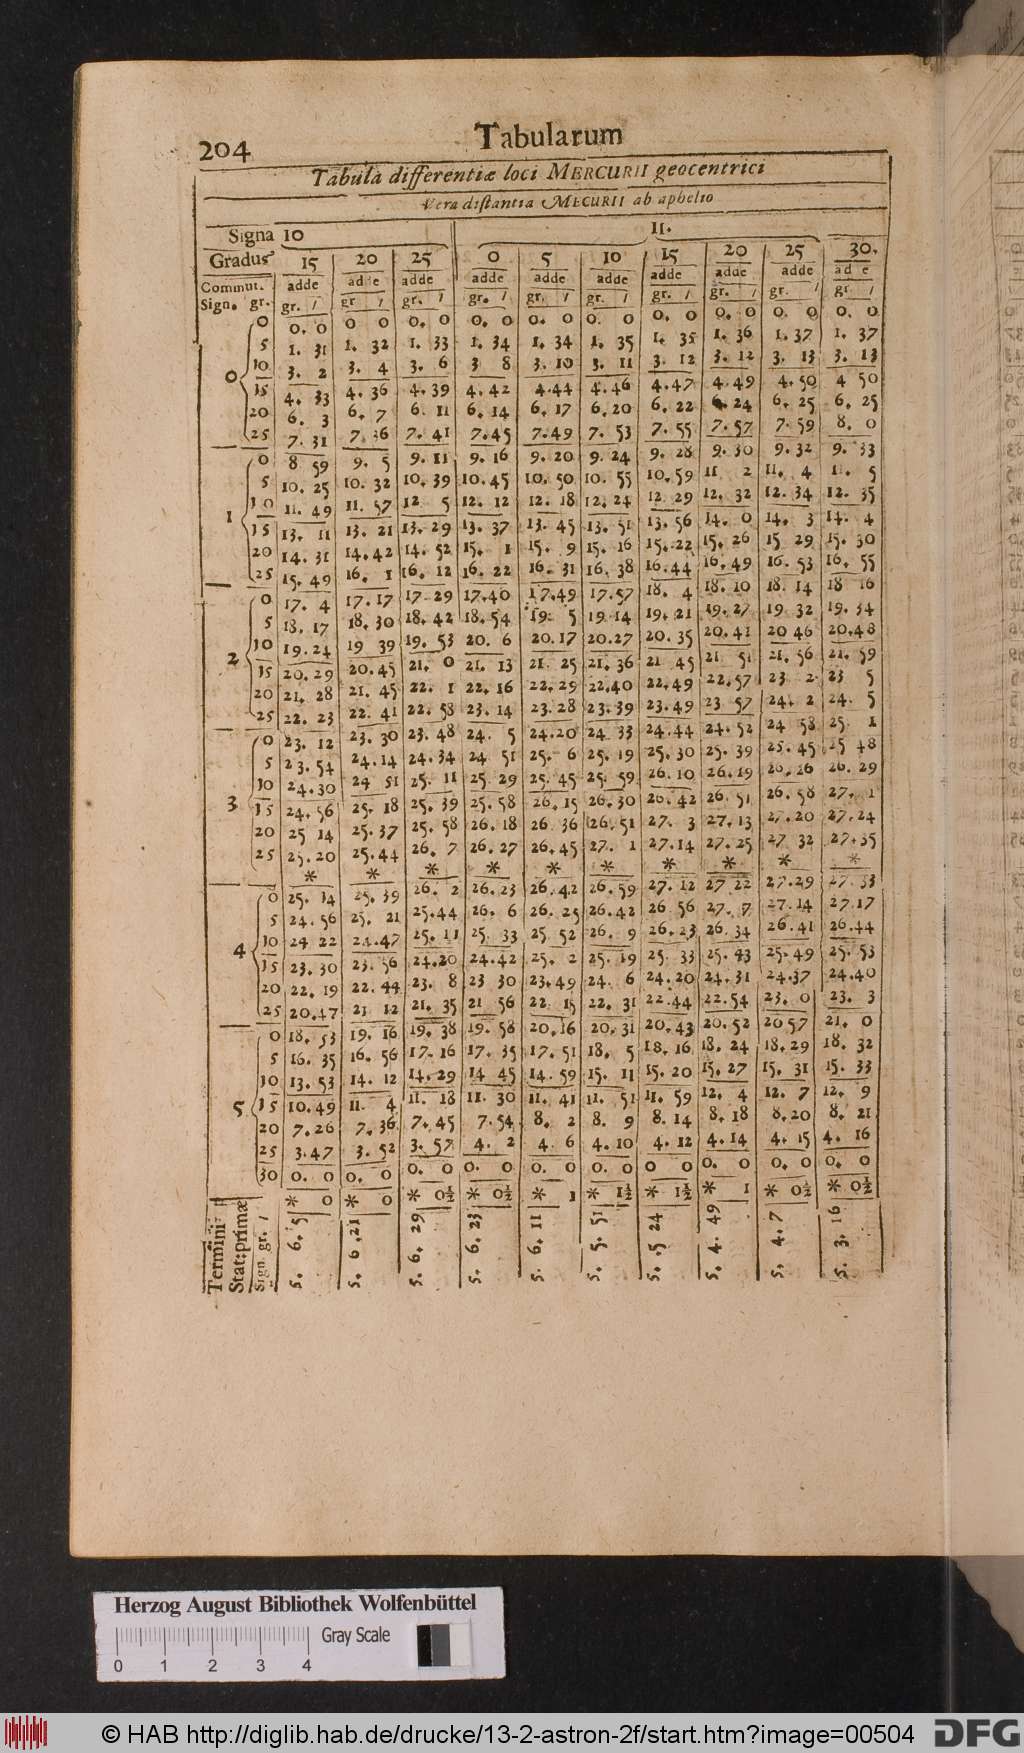 204 Tabularum
Tabula differentiæ loci MERCURII geocentrici
Vera distantia MECURII ab aphelio
Signa 10 11.
Gradus 15 20 25 0 5 10 15 20 25 30.
Commut. adde ad e adde adde adde adde adde adde adde ad e
Sign. gr. gr. ' gr ' gr. ' gr. ' gr. ' gr. ' gr. ' gr. ' gr. ' gr '
0 0 0. 0 0 0 0. 0 0. 0 0. 0 0. 0 0. 0 0. 0 0. 0 0. 0
5 1. 31 1. 32 1. 33 1. 34 1. 34 1. 35 1. 35 1. 36 1. 37 1. 37
10 3. 2 3. 4 3. 6 3 8 3. 10 3. 11 3. 12 3. 12 3. 13 3. 13
15 4. 33 4. 36 4. 39 4. 42 4.44 4.46 4.47 4.49 4. 50 4 50
20 6. 3 6. 7 6. 11 6. 14 6. 17 6. 20 6. 22 6. 24 6. 25 6. 25
25 7. 31 7. 36 7. 41 7.45 7.49 7. 53 7. 55 7. 57 7. 59 8. 0
1 0 8 59 9. 5 9. 11 9. 16 9. 20 9. 24 9. 28 9. 30 9. 32 9. 33
5 10. 25 10. 32 10. 39 10.45 10. 50 10. 55 10.59 11 2 11. 4 11. 5
10 11. 49 11. 57 12 5 12. 12 12. 18 12. 24 12 29 12. 32 12. 34 12. 35
15 13. 11 13. 21 13. 29 13. 37 13. 45 13. 51 13. 56 14. 0 14. 3 14. 4
20 14. 31 14.42 14. 52 15. 1 15. 9 15. 16 15.22 15. 26 15 29 15. 30
25 15. 49 16. 1 16. 12 16. 22 16. 31 16. 38 16.44 16. 49 16. 53 16. 55
2 0 17. 4 17.17 17 29 17.40 17.49 17.57 18. 4 18. 10 18. 14 18 16
5 18. 17 18. 30 18. 42 18. 54 19. 5 19 14 19. 21 19. 27 19 32 19. 34
10 19.24 19 39 19. 53 20. 6 20.17 20.27 20. 35 20. 41 20 46 20.48
15 20. 29 20.45 21. 0 21. 13 21. 25 21. 36 21 45 21 51 21. 56 21. 59
20 21. 28 21. 45 22. 1 22. 16 22. 29 22.40 22.49 22.57 23 2 23 5
25 22. 23 22. 41 22. 58 23. 14 23.28 23.39 23.49 23 57 24. 2 24. 5
3 0 23. 12 23. 30 23. 48 24. 5 24.20 24 33 24.44 24. 52 24 58 25. 1
5 23.54 24.14 24.34 24 51 25. 6 25. 19 25. 30 25. 39 25.45 25 48
10 24.30 24 51 25. 11 25 29 25. 45 25. 59 26. 10 26.19 26.26 26. 29
15 24. 56 25. 18 25. 39 25.58 26.15 26.30 26. 42 26. 51 26. 58 27. 1
20 25 14 25.37 25. 58 26. 18 26 36 26. 51 27. 3 27.13 27.20 27.24
25 25.20 25.44 26. 7 26. 27 26.45 27. 1 27.14 27. 25 27 32 27.35
* * * * * * * * * *
4 0 25. 34 25. 39 26. 2 26. 23 26.42 26.59 27. 12 27 22 27.29 27. 33
5 24. 56 25. 21 25.44 26. 6 26. 25 26.42 26 56 27. 7 27.14 27.17
10 24 22 24.47 25. 11 25. 33 25 52 26. 9 26. 23 26.34 26.41 26.44
15 23.30 23. 56 24.20 24.42 25. 2 25. 19 25. 33 25. 43 25.49 25. 53
20 22. 19 22. 44 23. 8 23 30 23.49 24. 6 24.20 24. 31 24.37 24.40
25 20.47 21 12 21. 35 21 56 22 15 22. 31 22.44 22.54 23. 0 23. 3
5 0 18. 53 19. 16 19. 38 19. 58 20.16 20. 31 20.43 20. 52 20 57 21. 0
5 16. 35 16. 56 17. 16 17. 35 17. 51 18. 5 18. 16 18. 24 18. 29 18. 32
10 13. 53 14. 12 14.29 14 45 14. 59 15. 11 15. 20 15. 27 15. 31 15. 33
15 10. 49 11. 4 11. 18 11. 30 11. 41 11. 51 11. 59 12. 4 12. 7 12. 9
20 7. 26 7. 36 7. 45 7.54 8. 2 8. 9 8.14 8. 18 8.20 8. 21
25 3.47 3. 52 3. 57 4. 2 4. 6 4. 10 4. 12 4. 14 4. 15 4. 16
30 0. 0 0. 0 0. 0 0. 0 0. 0 0. 0 0 0 0. 0 0. 0 0. 0
* 0 * 0 * 0½ * 0½ * 1 * 1½ * 1½ * 1 * 0½ * 0½
Termini
Stat: primæ
Sign. gr. '
5. 6. 5 5. 6.21 5. 6. 29 5. 6. 23 5. 6. 11 5. 5. 51 5. 5 24 5. 4. 49 5. 4. 7 5. 3. 16
Herzog August Bibliothek Wolfenbüttel
Gray Scale
0 1 2 3 4
© HAB http://diglib.hab.de/drucke/13-2-astron-2f/start.htm?image=00504 DFG